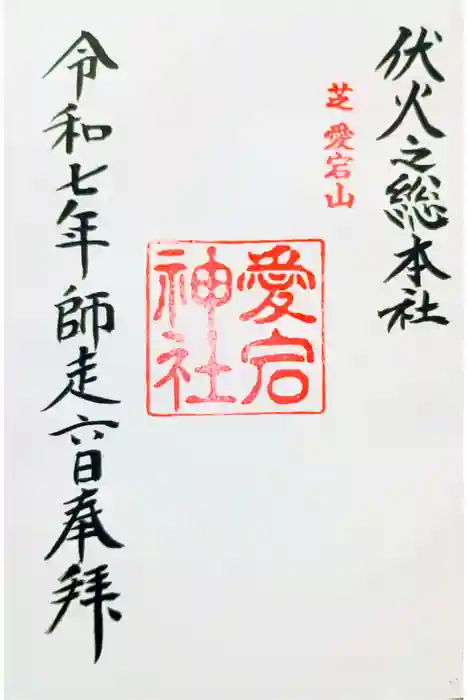 伏火之総本社
芝愛宕山
愛宕
神社
令和七年師走六日奉拜